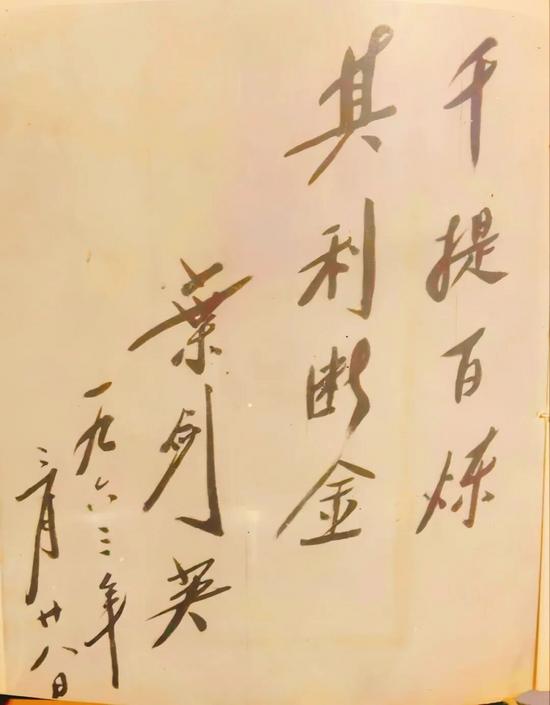 千提百炼
其利断金
葉剑英
一九六三年
二月廿八日